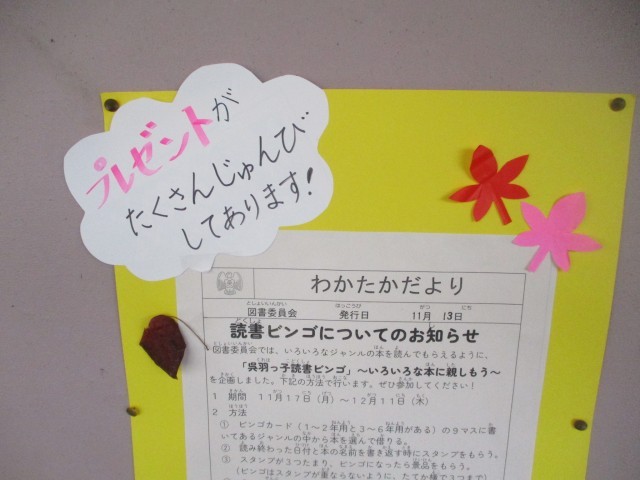 プレゼントが
たくさんじゅんび
してあります!
わかたかだより
図書委員会 発行日 11月 13日
読書ビンゴについてのお知らせ
図書委員会では、いろいろなジャンルの本を読んでもらえるように、
「呉羽っ子読書ビンゴ」～いろいろな本に親しもう～
を企画しました。下記の方法で行います。ぜひ参加してください!
1 期間 11月17日(月)～12月11日(木)
2 方法
① ビンゴカード(1～2年用と3～6年用がある)の9マスに書
いてあるジャンルの中から本を選んで借りる。
② 読み終わった日付と本の名前を書き返す時にスタンプをもらう。
③ スタンプが3つたまり、ビンゴになったら景品をもらう。
(ビンゴはスタンプが重ならないように、たてか横で3つまで)